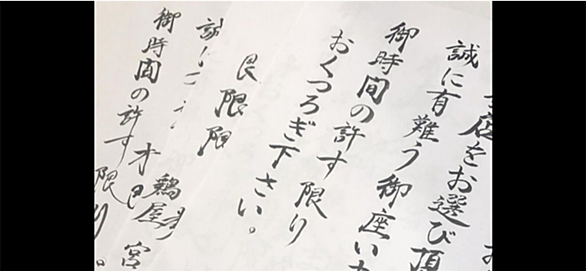 店をお選び頂
誠に有難う御座い
御時間の許す限り
おくつろぎ下さい。
限限
御時間の許す
限り。
鶏屋
宮